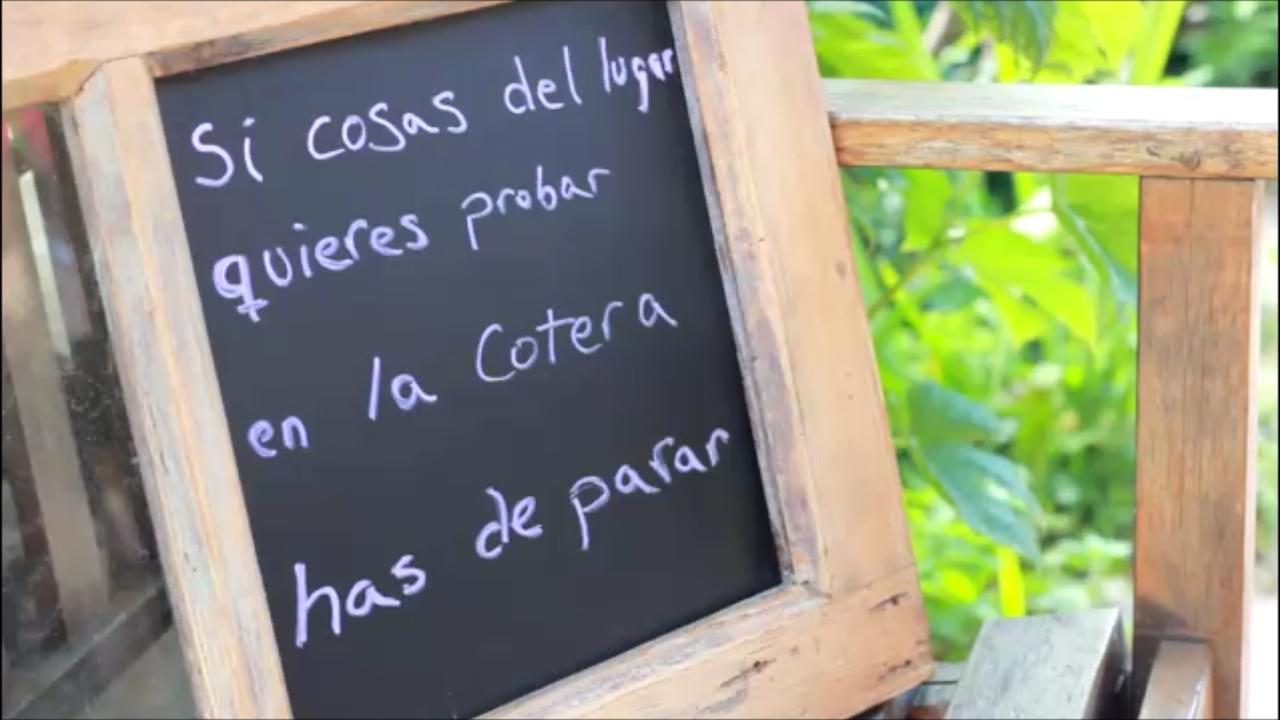 Si cosas del lugar
quieres probar
en la Cotera
has de parar